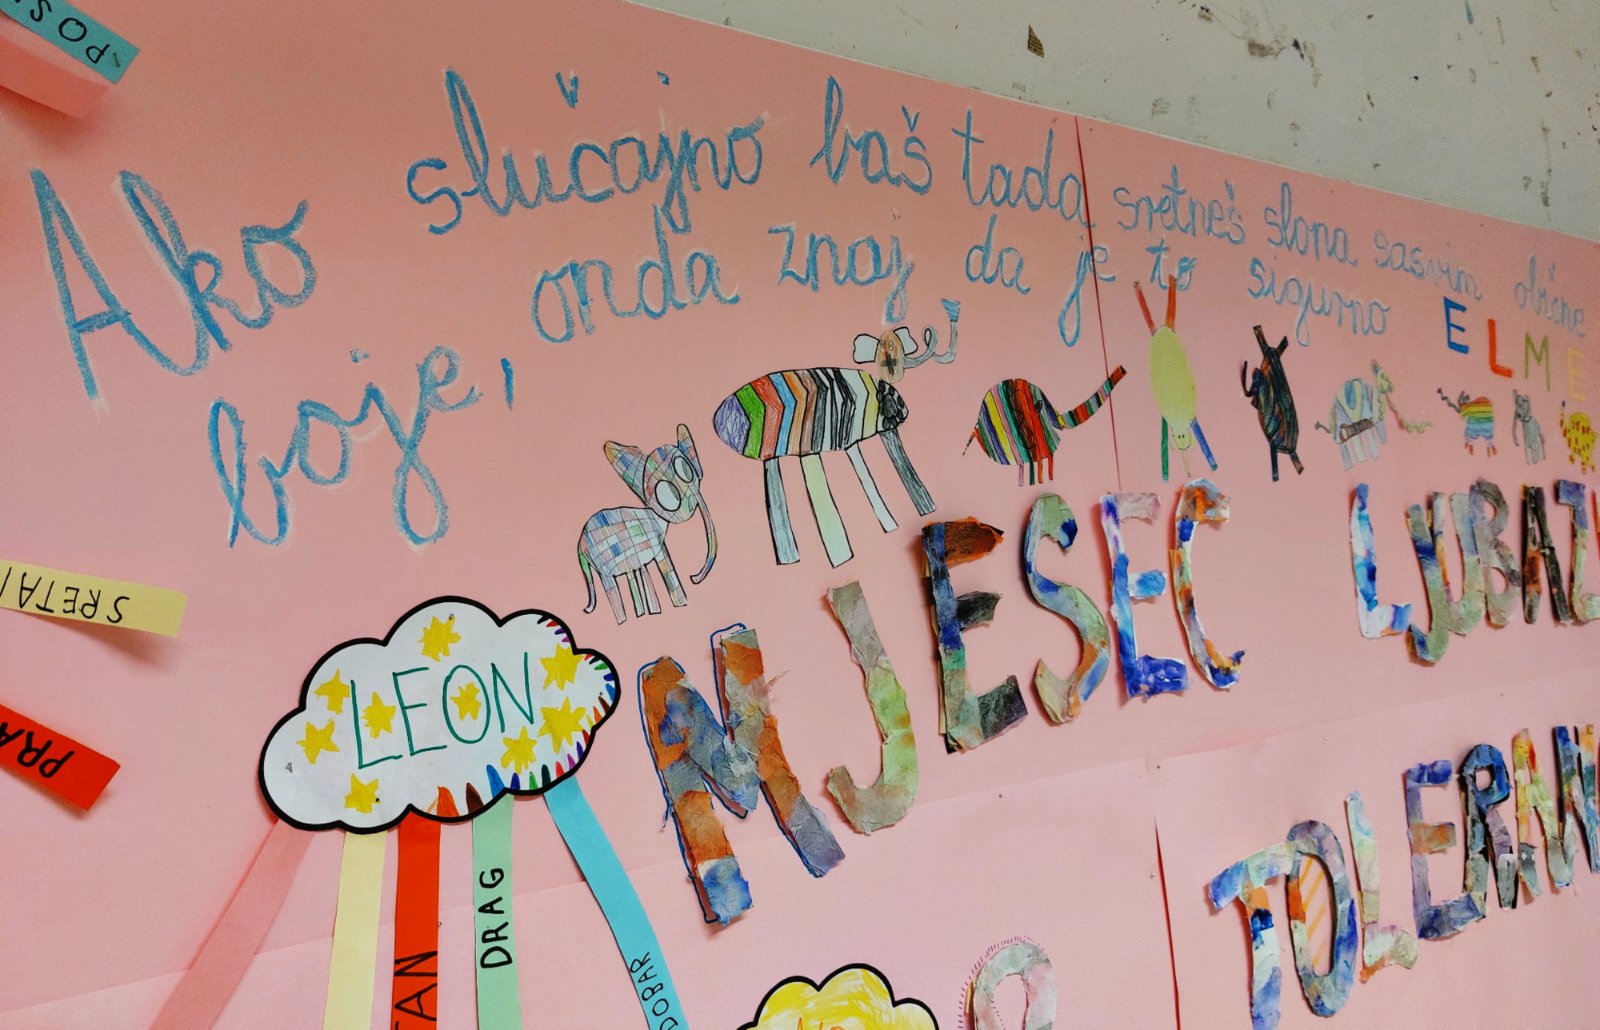 Ako slučajno baš tada sretneš slona sasvim obične
boje, onda znaj da je to sigurno
ELME
MJESEC LJUBAZ
TOLERAN
LEON
DRAG
DOBAR
TAN
SRETA
PRA
POS